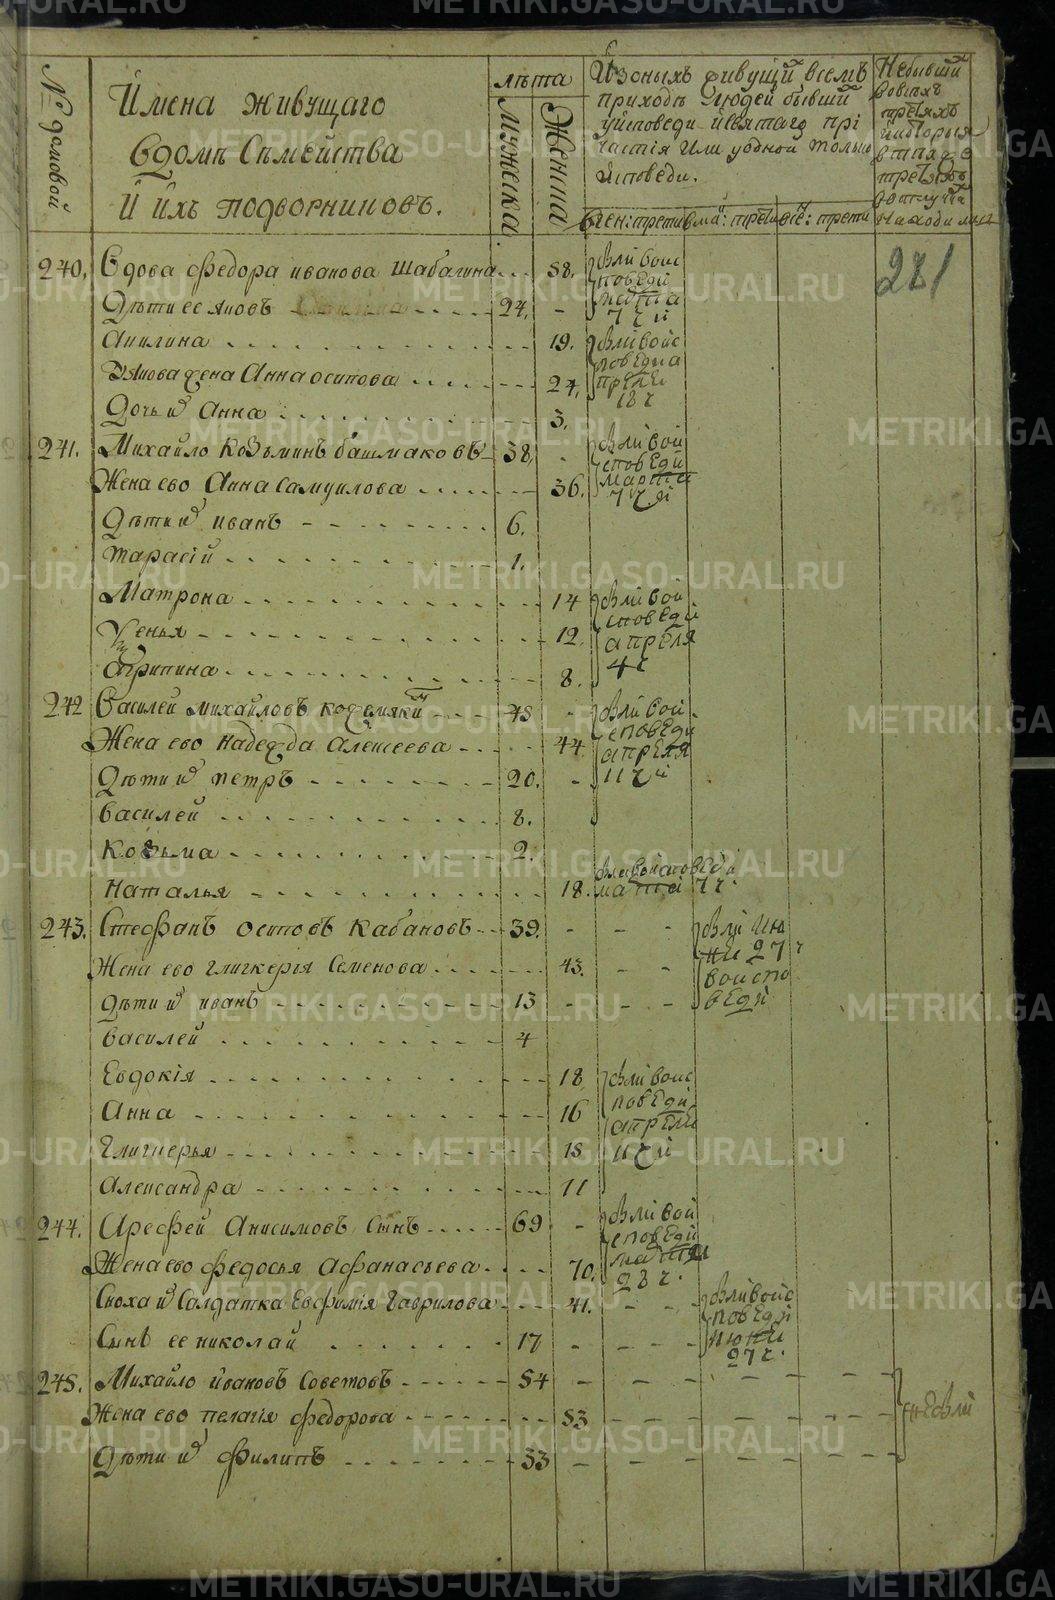 № домовой
Имена живущаго
вдомѣ Семейства
И ихъ подворниковъ.
лѣта
мужеска
Женска
Изоныхъ живущи всемъ
приходѣ людей бывши
уисповеди исвятаго при
частія или уодной только
исповеди.
Небывши
вовсѣхъ
третяхъ
281
240. Вдова Федора иванова Шабагина 58. были воис
поведи
марта
7 чи
Дѣти ее яковъ 24. -
Акилина 19. были воис
поведи а
прелѣ
18 ч
яковa жена Анна осипова 24.
Дочь и Анна 3.
241. Михайло Козьминъ башмаковъ 38. - были вои
споведи
марта
7 чи
Жена ево Анна Самуилова 36.
Дѣти и иванъ 6.
тарасіи 1.
Матрона 14 были вои
споведи
апреля
4 ч
Ксенья 12.
Агрипина 8.
242 Василеи михайловъ кожемяки 45 - были вои
споведи
апреля
11 чи
Жена ево надежда Алексеева 44
Дѣти и петръ 20. -
василеи 8.
Козьма 2.
Наталья 18. были воисповеди
марта 7 ч.
243. Стефанъ осиповъ Кабановъ 39. - - - были ию
ни 27 ч
воиспо
веди
Жена ево глигкерія Семенова 43. - -
Дѣти и иванъ 13 - - -
василеи 4
Евдокія 18 были воис
поведи
апреля
11 чи
Анна 16
Глигкерья 15
Александра 11
244. Арефеи Анисимовъ Сынъ 69 - были вои
споведи
марта
28 ч.
Жена ево федосья Афанасьева 70.
Сноха и Салдатка Евфимія Гаврилова 41. - - были воис
поведи
июни
27 ч.
Сынъ ее николаи 17 - - - -
245. Михайло ивановъ Советовъ 54 - - - - - - небыли
Жена ево пелагія федорова 53 - - - - - -
Дѣти и филипъ 33 - - - - - - -
METRIKI.GASO-URAL.RU